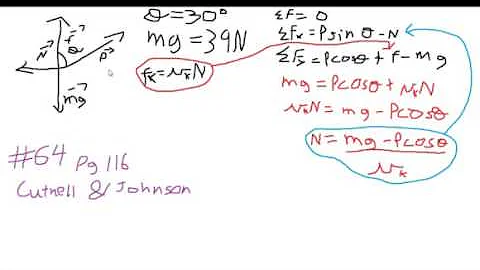 N f θ P
mg
θ = 30°
mg = 39N
fk = μkN
ΣF = 0
ΣFx = Psinθ - N
ΣFy = Pcosθ + f - mg
mg = Pcosθ + μkN
μkN = mg - Pcosθ
N = mg - Pcosθ
μk
#64 Pg 116
Cutnell & Johnson